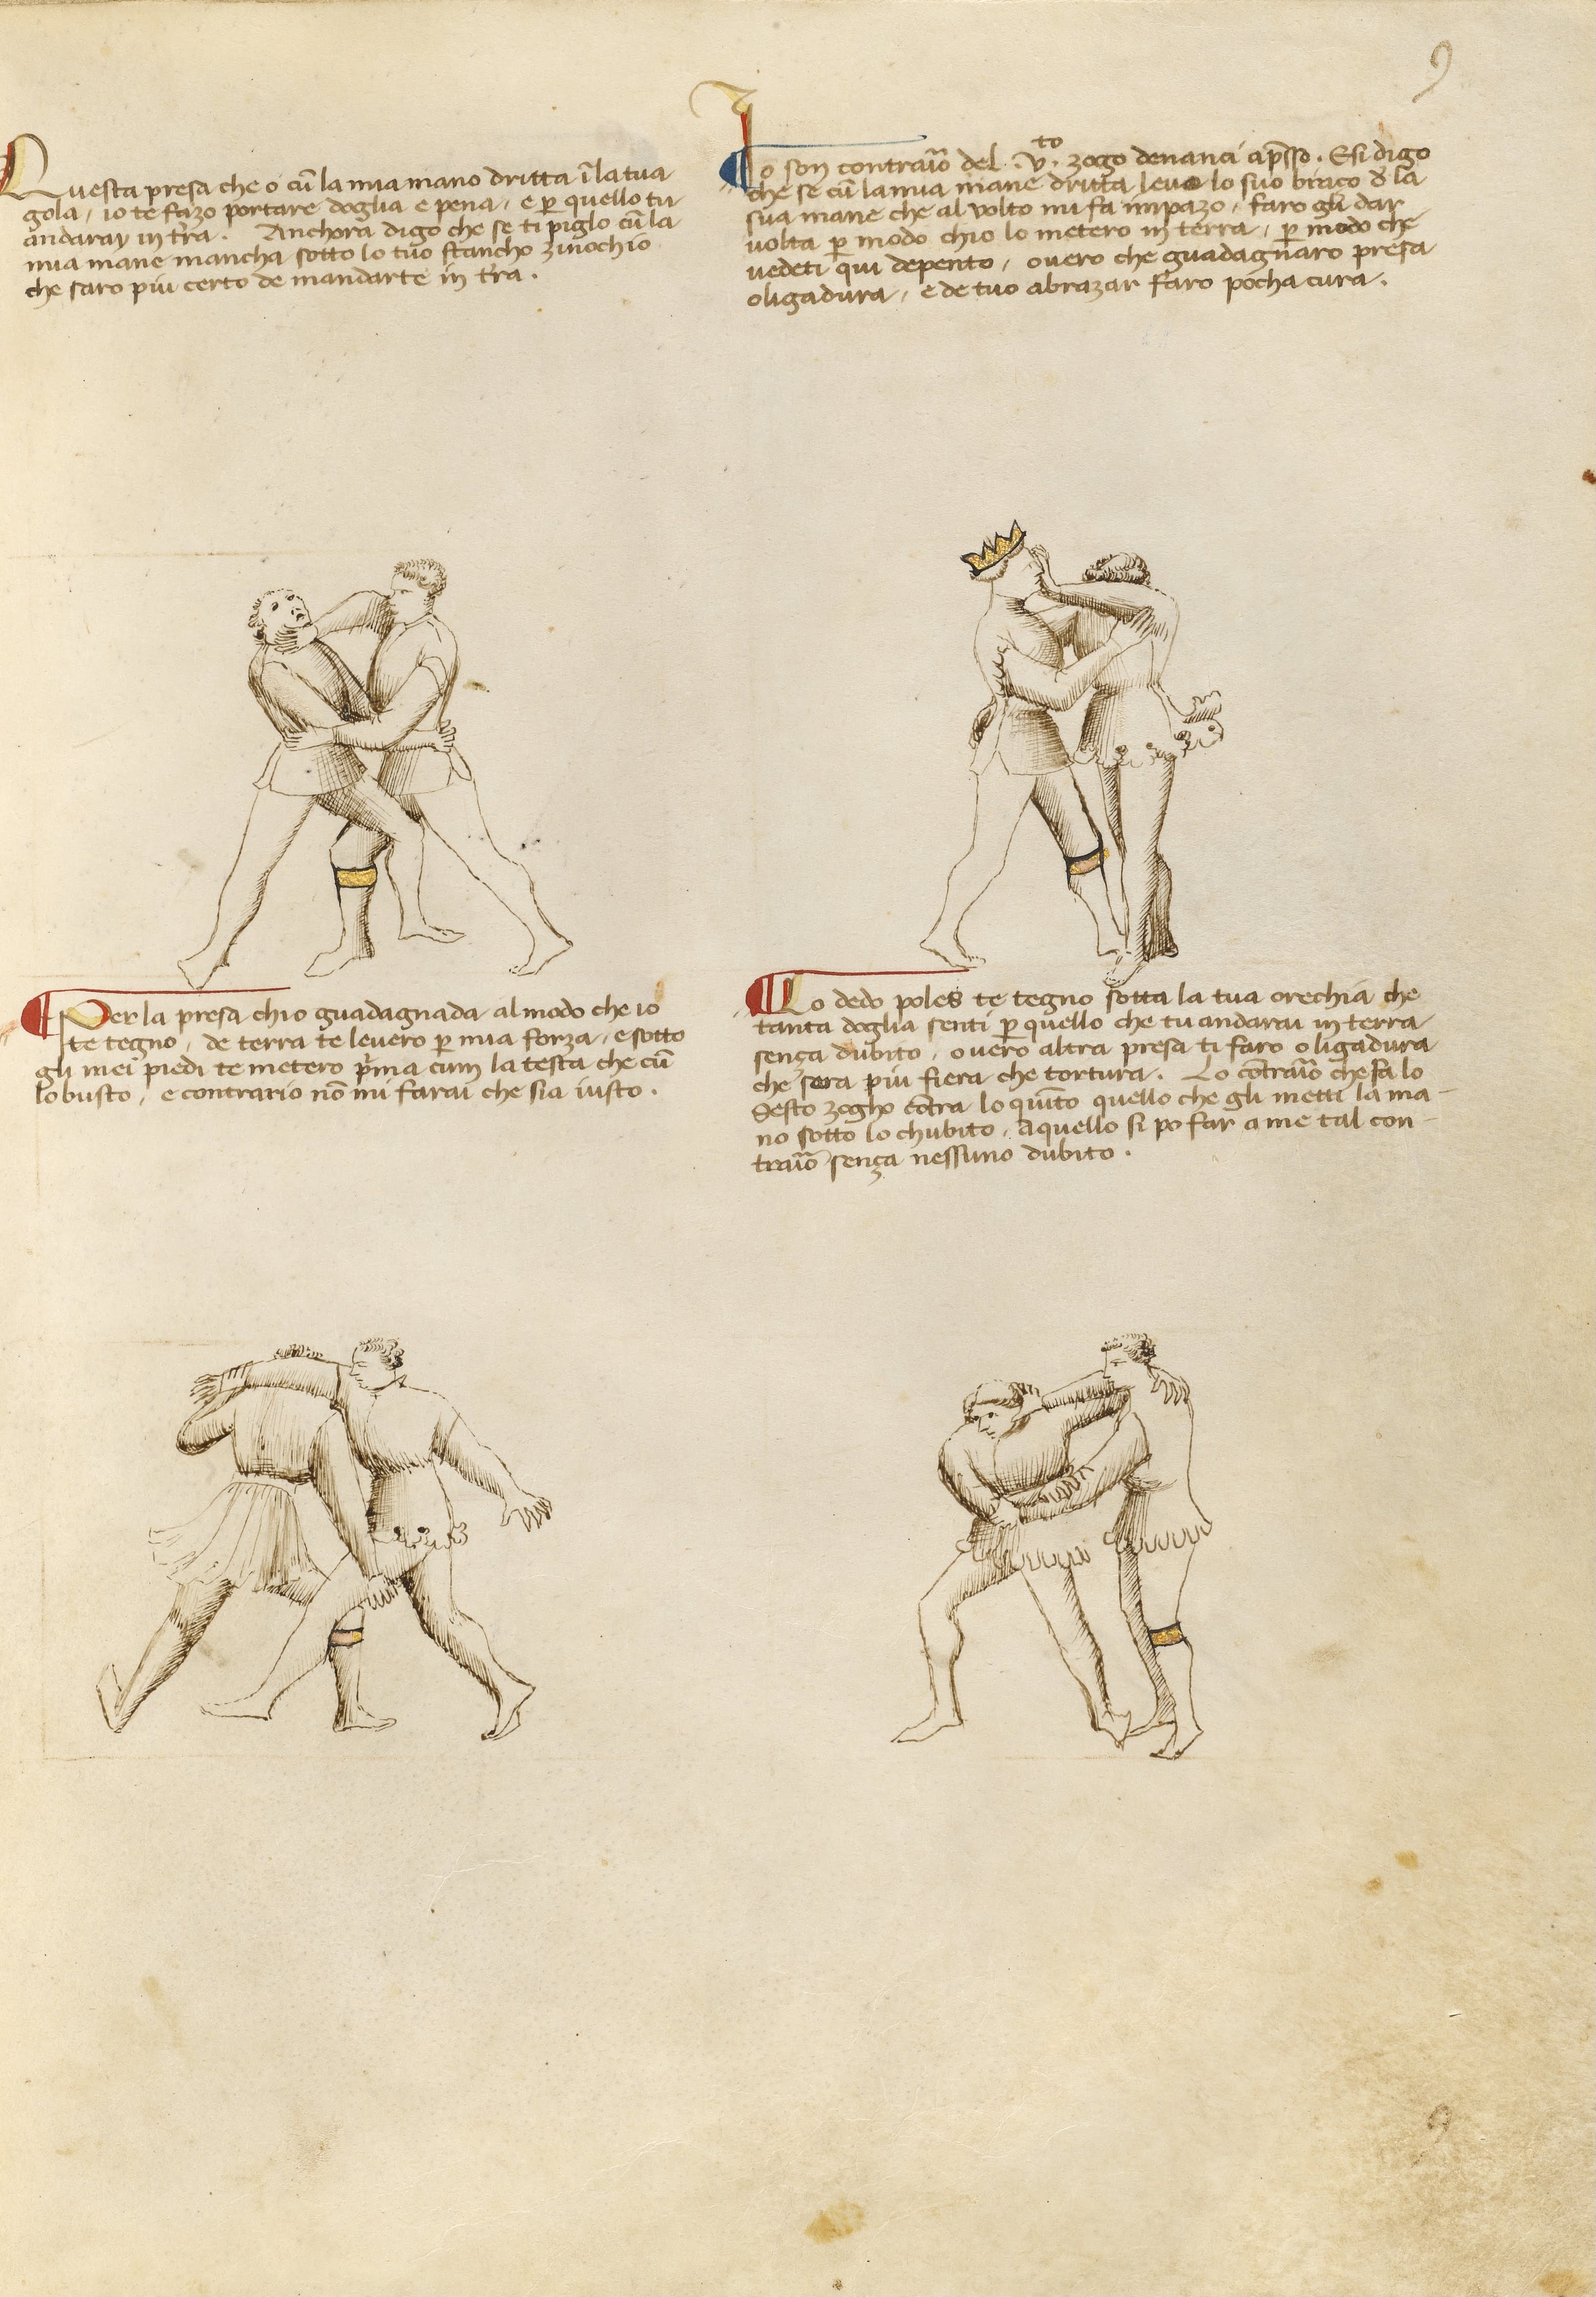 9
Questa presa che o cũ la mia mano dritta ĩ la tua
gola, io te fazo portare doglia e pena, e p̱ quello tu
andaray in tr̃a. Anchora digo che se ti piglo cũ la
mia mane mancha sotto lo tuo stancho zinochio
che saro piu certo de mandarte in tr̃a.
Io son contraĩo del .V.to zogo denanci ap̃sso. E si digo
che se cũ la mia mane dritta levo lo suo braço d̃ la
sua mane che al volto mi fa impazo, faro gli dar
volta p̱ modo chio lo metero in terra, p̱ modo che
vedeti qui depento, overo che guadagnaro presa
o ligadura, e de tuo abrazar faro pocha cura.
Per la presa chio guadagnada al modo che io
te tegno, de terra te levero p̱ mia forza, e sotto
gli mei piedi te metero p̃ma cum la testa che cũ
lo busto, e contrario nõ mi farai che sia iusto.
Lo dedo poles te tegno sotta la tua orechia che
tanta doglia senti p̱ quello che tu andarai in terra
sença dubito, overo altra presa ti faro o ligadura
che sera piu fiera che tortura. Lo cõtraĩo che fa lo
Sesto zogho cõtra lo quĩto quello che gli metti la ma-
no sotto lo chubito, aquello si po far a me tal con-
traĩo sença nessuno dubito.
9